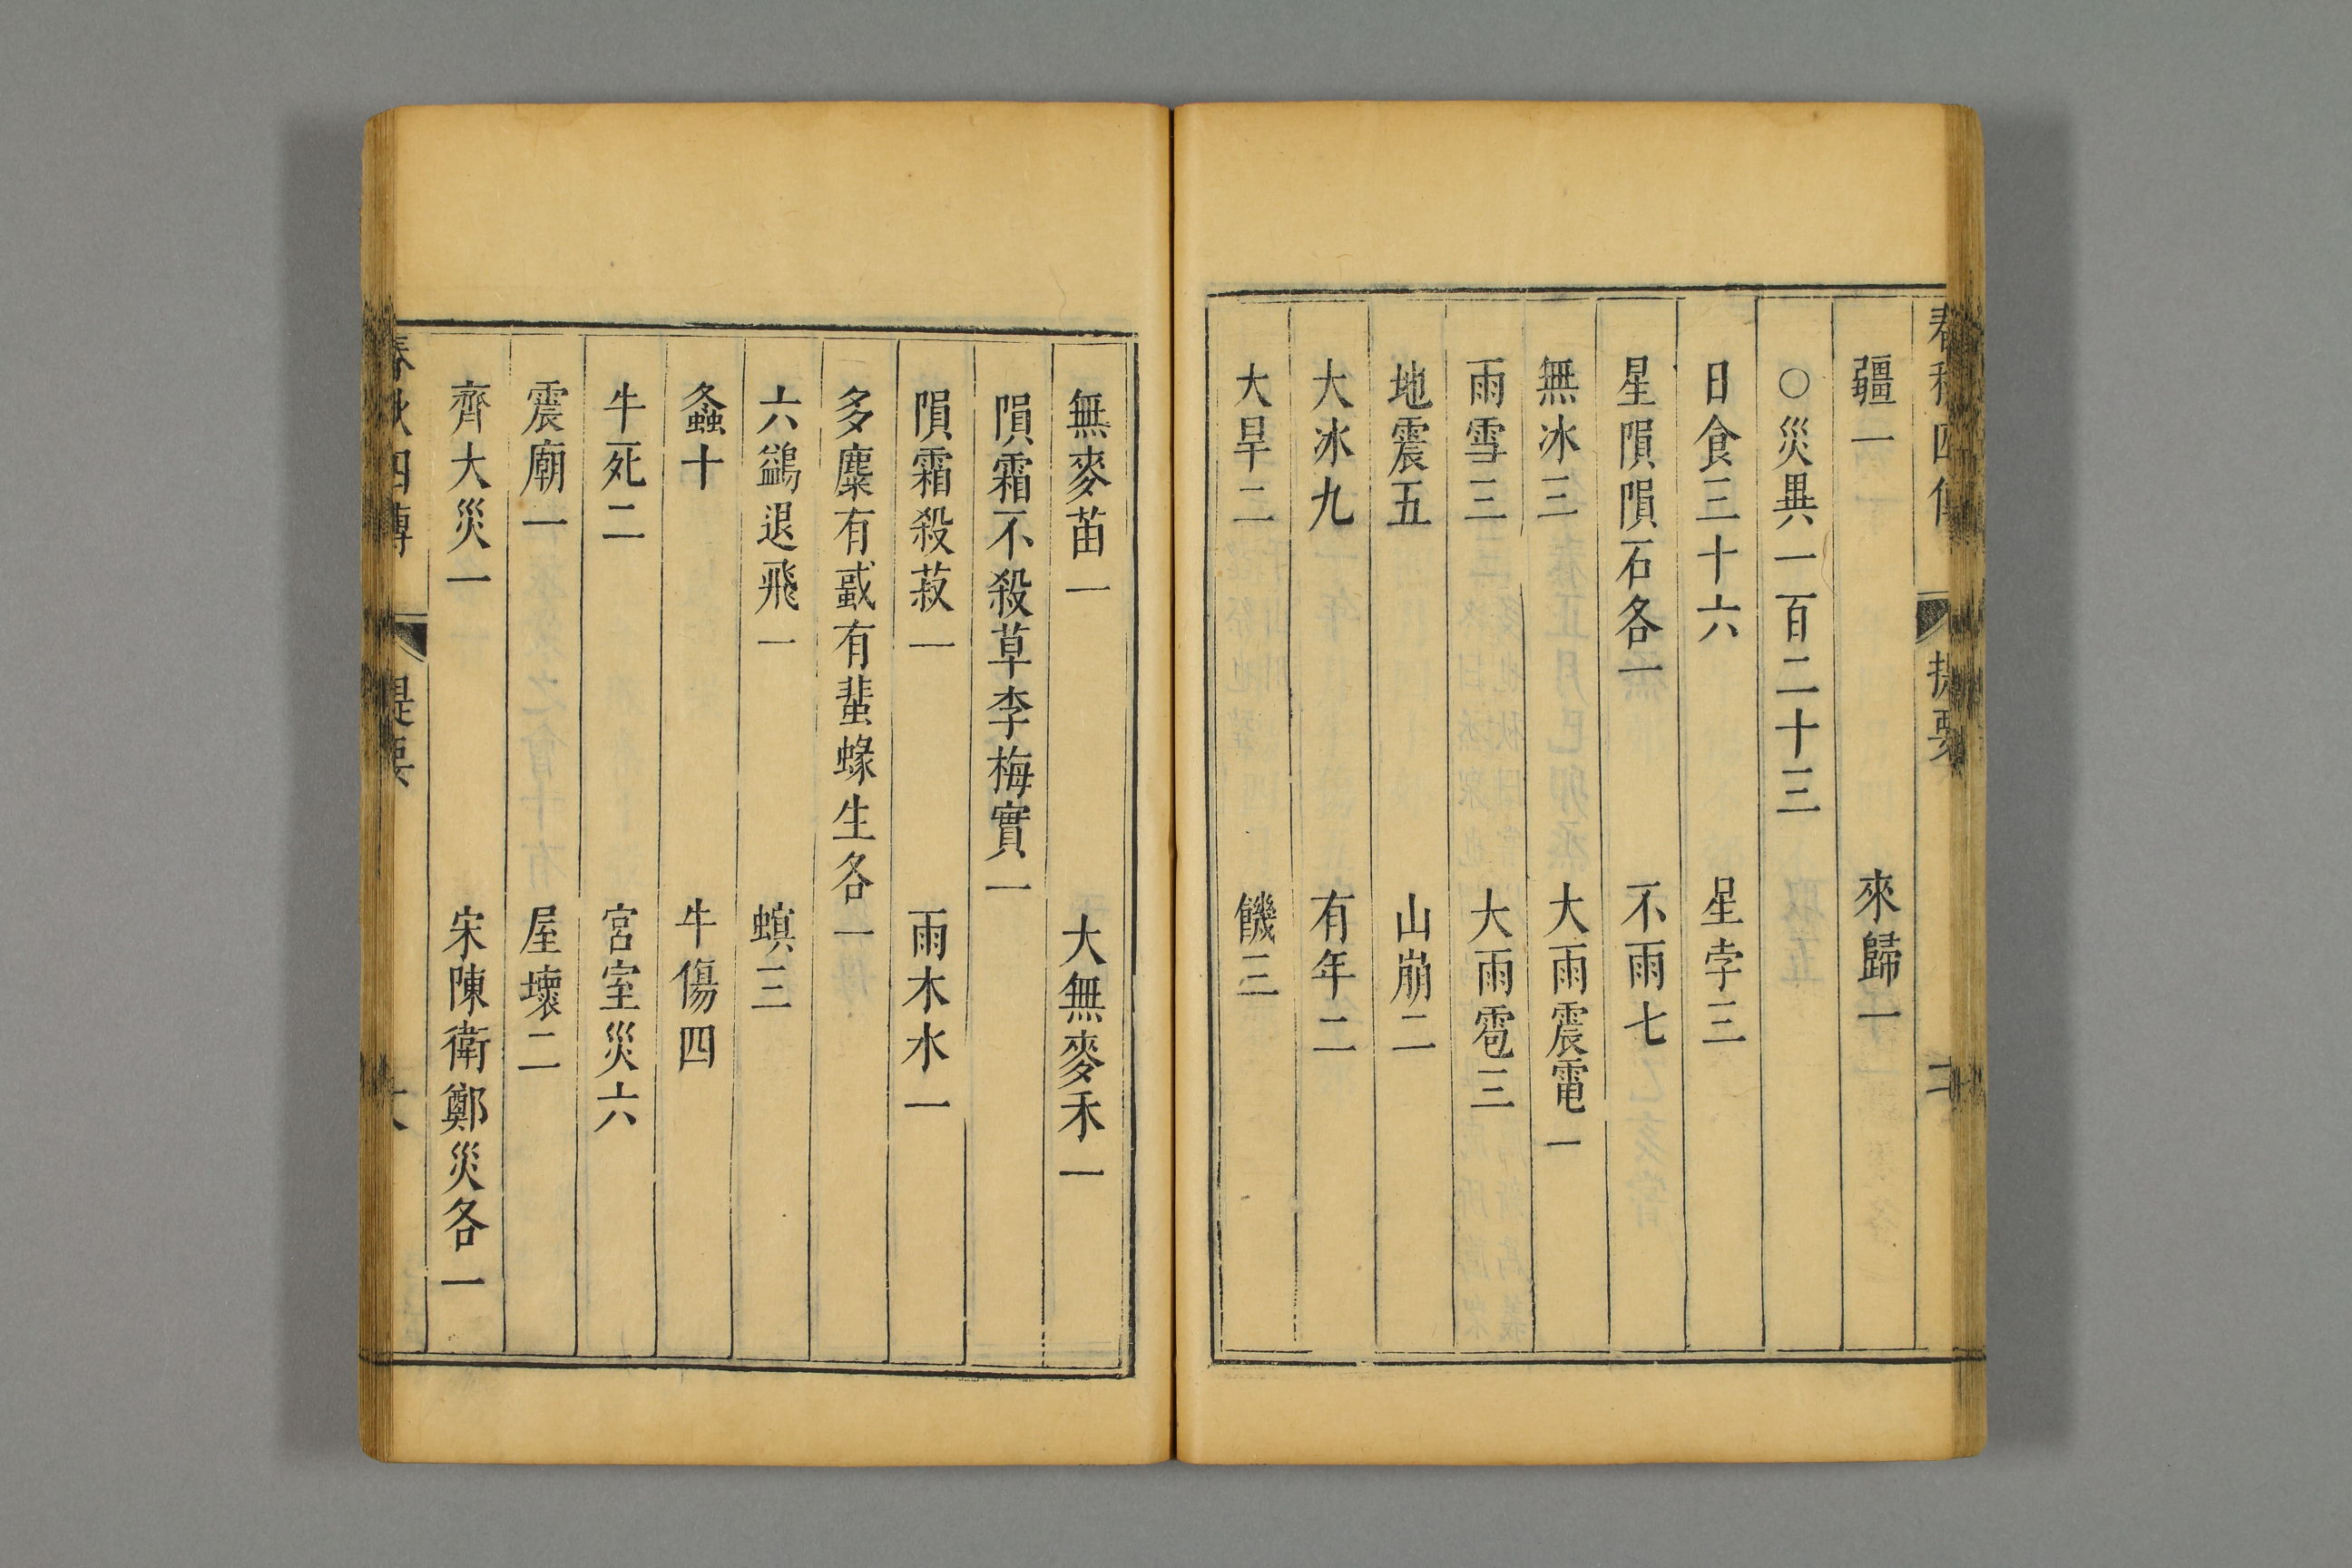 疆一 來歸一
○災異一百二十三
日食三十六 星孛三
星隕隕石各一 不雨七
無冰三 大雨震電一
雨雪三 大雨雹三
地震五 山崩二
大水九 有年二
大旱二 饑三
無麥苗一 大無麥禾一
隕霜不殺草李梅實一
隕霜殺菽一 雨木冰一
多麋有蜮有蜚蝝生各一
六鷁退飛一 螟三
螽十 牛傷四
牛死二 宮室災六
震廟一 屋壞二
齊大災一 宋陳衛鄭災各一
春秋四傳 提要